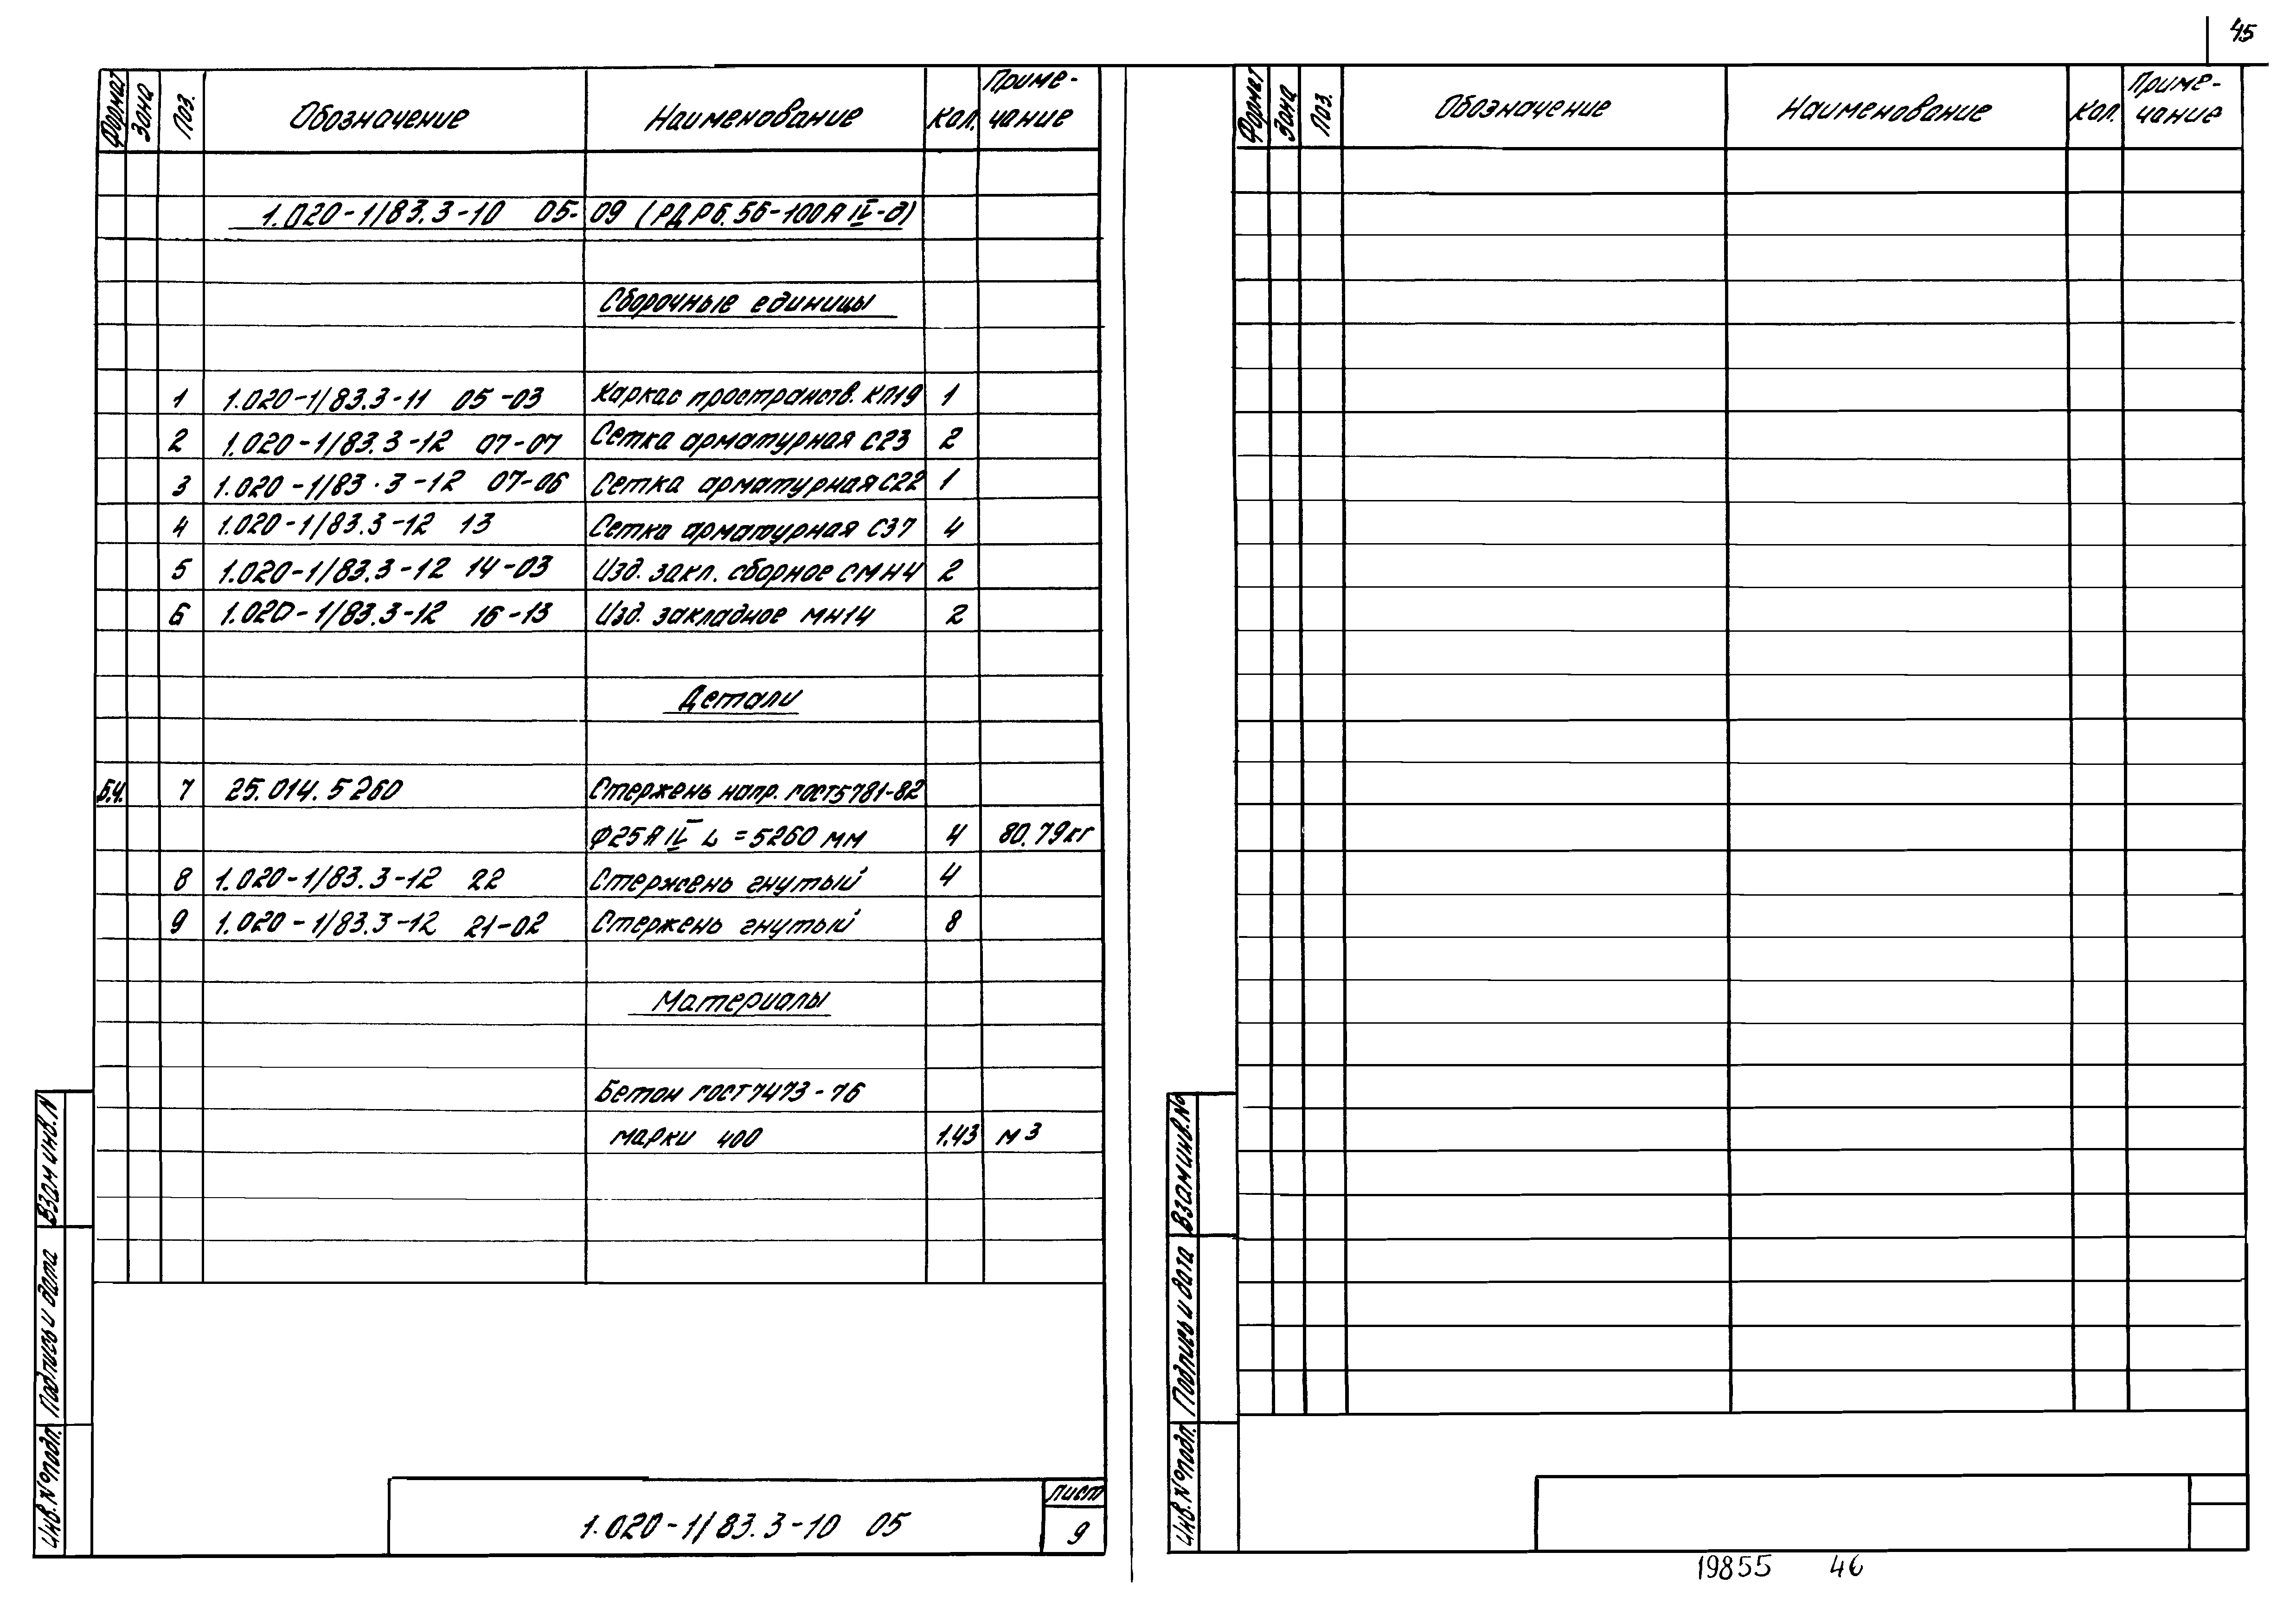 45
Формат Зона Поз. Обозначение Наименование Кол. Приме-
чание
1.020-1/83.3-10 05-09 (РДР6.56-100АIV-д)
Сборочные единицы
1 1.020-1/83.3-11 05-03 Каркас пространств. КП19 1
2 1.020-1/83.3-12 07-07 Сетка арматурная С23 2
3 1.020-1/83.3-12 07-06 Сетка арматурная С22 1
4 1.020-1/83.3-12 13 Сетка арматурная С37 4
5 1.020-1/83.3-12 14-03 Изд. закл. сборное СМН4 2
6 1.020-1/83.3-12 16-13 Изд. закладное МН14 2
Детали
Б.Ч. 7 25.014.5260 Стержень напр. ГОСТ5781-82
Ф25АIV L=5260 мм 4 80.79кг
8 1.020-1/83.3-12 22 Стержень гнутый 4
9 1.020-1/83.3-12 21-02 Стержень гнутый 8
Материалы
Бетон ГОСТ7473-76
марки 400 1.43 м3
Взам инв.N
Подпись и дата
Инв.N°подл.
1.020-1/83.3-10 05
лист
9
Формат Зона Поз. Обозначение Наименование Кол. Приме-
чание
Взам инв.N°
Подпись и дата
Инв.N°подл.
19855 46